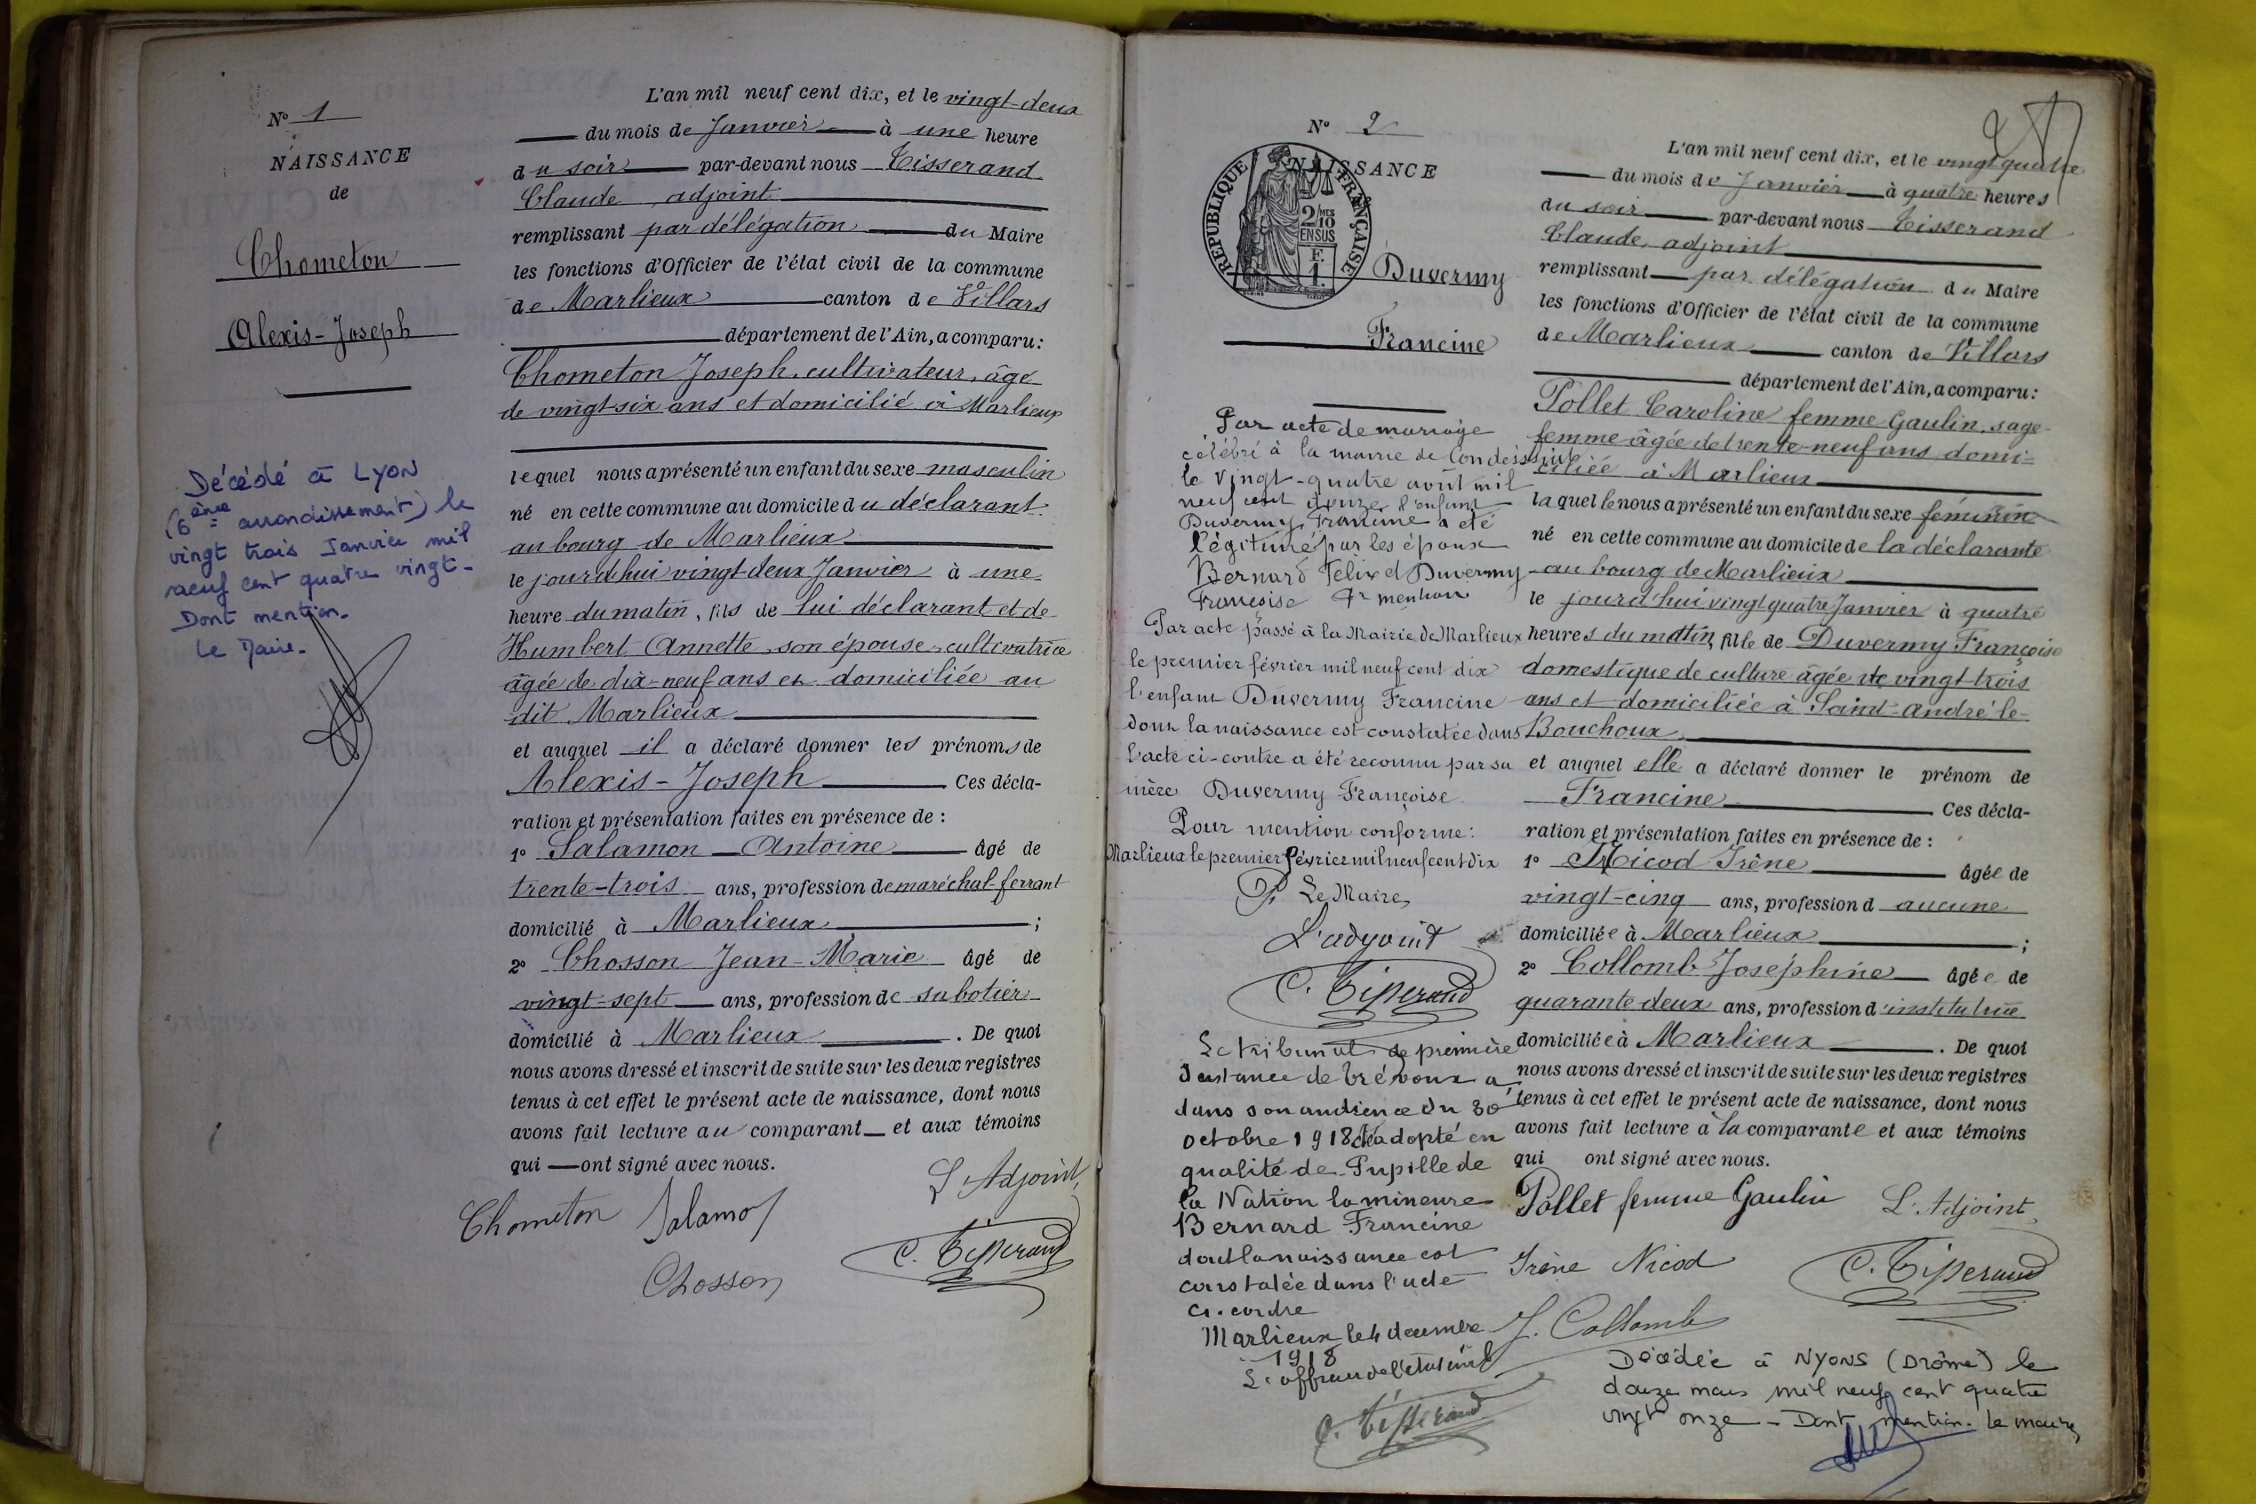 N° 1
NAISSANCE
de
Chometon
Alexis-Joseph
Décédé à LYON
(6ème arrondissement) le
vingt trois Janvier mil
neuf cent quatre vingt-
Dont mention.
Le Maire.
L'an mil neuf cent dix, et le vingt-deux
du mois de Janvier à une heure
du soir par-devant nous Tisserand
Claude, adjoint
remplissant par délégation du Maire
les fonctions d'Officier de l'état civil de la commune
de Marlieux canton de Villars
département de l'Ain, a comparu:
Chometon Joseph, cultivateur, âgé
de vingt-six ans et domicilié à Marlieux
lequel nous a présenté un enfant du sexe masculin
né en cette commune au domicile du déclarant
au bourg de Marlieux
le jourd'hui vingt-deux Janvier à une
heure du matin, fils de lui déclarant et de
Humbert Annette, son épouse, cultivatrice
âgée de dix-neuf ans et domiciliée au
dit Marlieux
et auquel il a déclaré donner les prénoms de
Alexis-Joseph Ces décla-
ration et présentation faites en présence de :
1° Salamon Antoine âgé de
trente-trois ans, profession de maréchal-ferrant
domicilié à Marlieux ;
2° Chosson Jean-Marie âgé de
vingt-sept ans, profession de sabotier
domicilié à Marlieux . De quoi
nous avons dressé et inscrit de suite sur les deux registres
tenus à cet effet le présent acte de naissance, dont nous
avons fait lecture au comparant et aux témoins
qui ont signé avec nous.
L'Adjoint,
Chometon Salamon
C. Tisserand
Chosson
N° 2
NAISSANCE
RÉPUBLIQUE FRANÇAISE
2/10 MES
EN SUS
F.
1.
Duvermy
Francine
Par acte de mariage
célébré à la mairie de Condeissiat
le vingt-quatre août mil
neuf cent douze l'enfant
Duvermy Francine a été
légitimé par les époux
Bernard Félix et Duvermy
Françoise Pr mention
Par acte passé à la Mairie de Marlieux
le premier février mil neuf cent dix
l'enfant Duvermy Francine
dont la naissance est constatée dans
l'acte ci-contre a été reconnu par sa
mère Duvermy Françoise
Pour mention conforme:
Marlieux le premier février mil neuf cent dix
P. Le Maire,
L'adjoint
C. Tisserand
Le tribunal de première
Instance de Trévoux a,
dans son audience du 30
octobre 1918 adopté en
qualité de Pupille de
la Nation la mineure
Bernard Francine
dont la naissance est
constatée dans l'acte
ci-contre
Marlieux le 4 décembre
1918
L'officier de l'état civil
C. Tisserand
L'an mil neuf cent dix, et le vingt quatre
du mois de Janvier à quatre heures
du soir par-devant nous Tisserand
Claude, adjoint
remplissant par délégation du Maire
les fonctions d'Officier de l'état civil de la commune
de Marlieux canton de Villars
département de l'Ain, a comparu:
Pollet Caroline femme Gaulin, sage-
femme âgée de trente-neuf ans domi-
ciliée à Marlieux
laquelle nous a présenté un enfant du sexe féminin
né en cette commune au domicile de la déclarante
au bourg de Marlieux
le jourd'hui vingt quatre Janvier à quatre
heures du matin, fille de Duvermy Françoise
domestique de culture âgée de vingt trois
ans et domiciliée à Saint-André-le-
Bouchoux
et auquel elle a déclaré donner le prénom de
Francine Ces décla-
ration et présentation faites en présence de :
1° Nicod Irène âgée de
vingt-cinq ans, profession d aucune
domiciliée à Marlieux ;
2° Collomb Joséphine âgée de
quarante deux ans, profession d'institutrice
domiciliée à Marlieux . De quoi
nous avons dressé et inscrit de suite sur les deux registres
tenus à cet effet le présent acte de naissance, dont nous
avons fait lecture à la comparante et aux témoins
qui ont signé avec nous.
Pollet femme Gaulin L'Adjoint,
Irène Nicod C. Tisserand
J. Collomb
Décédée à NYONS (Drôme) le
douze mars mil neuf cent quatre
vingt onze - Dont mention. Le maire,